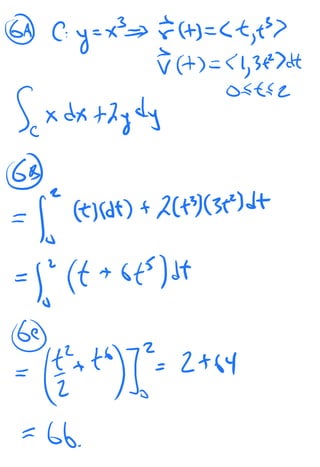 6A C: y=x³ ⇒ r⃗(t)=<t,t³>
v⃗(t)=<1,3t²>dt
0≤t≤2
∫_C x dx+2y dy
6B
= ∫₀² (t)(dt) + 2(t³)(3t²)dt
= ∫₀² (t + 6t⁵)dt
6C
= (t²/2 + t⁶)]₀² = 2+64
= 66.